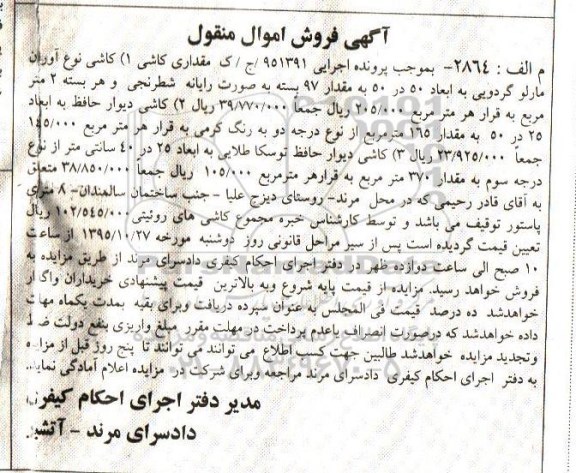 آگهی فروش اموال منقول
م الف : ٢٨٦٤- بموجب پرونده اجرایی ٩٥١٣٩١ /ج / ک مقداری کاشی ١) کاشی نوع آوران
مارلو گردویی به ابعاد ٥٠ در ٥٠ به مقدار ٩٧ بسته به صورت رایانه شطرنجی و هر بسته ٢ متر
مربع به قرار هر متر مربع ٢٠٥/٠٠٠ ریال جمعاً ٣٩/٧٧٠/٠٠٠ ریال ٢) کاشی دیوار حافظ به ابعاد
٢٥ در ٥٠ به مقدار ١٦٥ مترمربع از نوع درجه دو به رنگ کرمی به قرار هر متر مربع ١٤٥/٠٠٠
جمعاً ٢٣/٩٢٥/٠٠٠ ریال ٣) کاشی دیوار حافظ توسکا طلایی به ابعاد ٢٥ در ٤٠ سانتی متر از نوع
درجه سوم به مقدار ٣٧٠ متر مربع به قرارهر مترمربع ١٠٥/٠٠٠ ریال جمعاً ٣٨/٨٥٠/٠٠٠ متعلق
به آقای قادر رحیمی که در محل مرند- روستای دیزج علیا - جنب ساختمان سالمندان- ٨ متری
پاستور توقیف می باشد و توسط کارشناس خبره مجموع کاشی های روئیتی ١٠٢/٥٤٥/٠٠٠ ریال
تعیین قیمت گردیده است پس از سیر مراحل قانونی روز دوشنبه مورخه ١٣٩٥/١٠/٢٧ از ساعت
١٠ صبح الی ساعت دوازده ظهر در دفتر اجرای احکام کیفری دادسرای مرند از طریق مزایده به
فروش خواهد رسید. مزایده از قیمت پایه شروع وبه بالاترین قیمت پیشنهادی خریداران واگذار
خواهدشد ده درصد قیمت فی المجلس به عنوان سپرده دریافت وبرای بقیه بمدت یکماه مهلت
داده خواهدشد که درصورت انصراف یاعدم پرداخت در مهلت مقرر مبلغ واریزی بنفع دولت ضبط
وتجدید مزایده خواهدشد طالبین جهت کسب اطلاع می توانند می توانند تا پنج روز قبل از مزایده
به دفتر اجرای احکام کیفری دادسرای مرند مراجعه وبرای شرکت در مزایده اعلام آمادگی نمایند.
مدیر دفتر اجرای احکام کیفری
دادسرای مرند - آتشبر